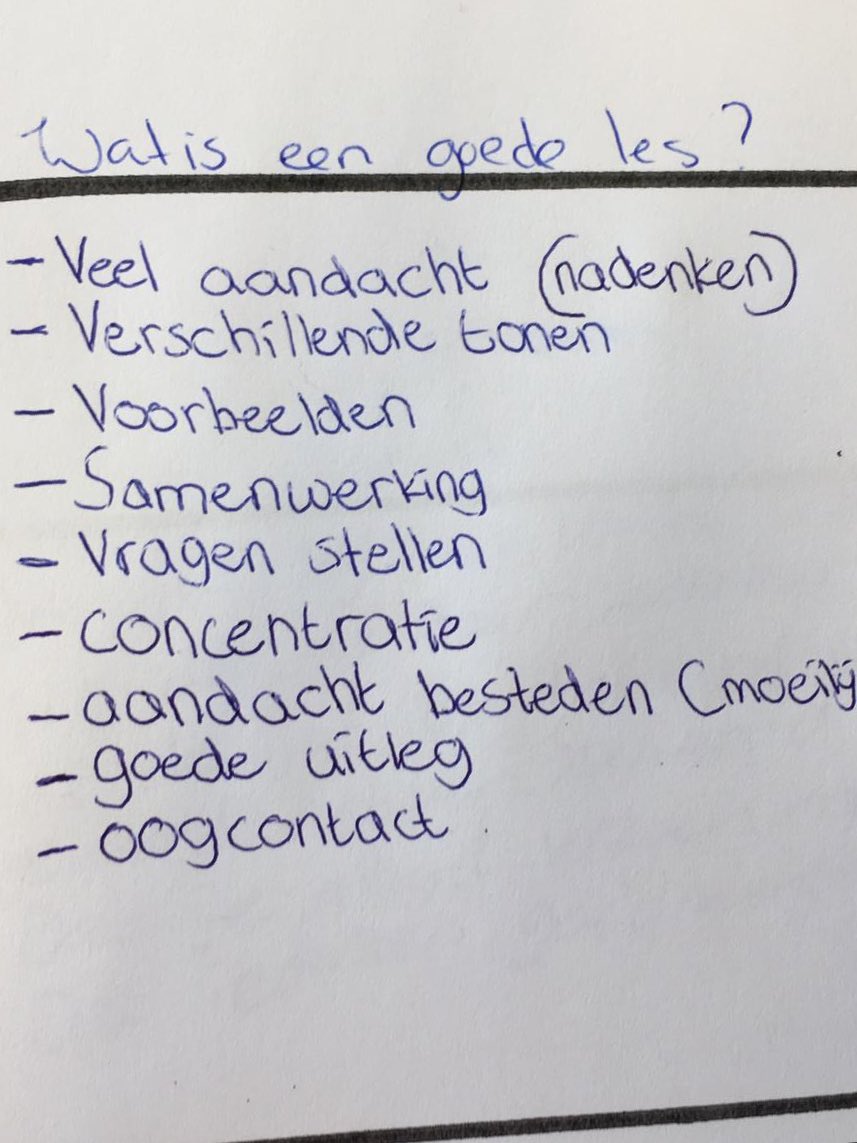 Wat is een goede les?
- Veel aandacht (nadenken)
- Verschillende tonen
- Voorbeelden
- Samenwerking
- Vragen stellen
- concentratie
- aandacht besteden (moeilij
- goede uitleg
- oogcontact